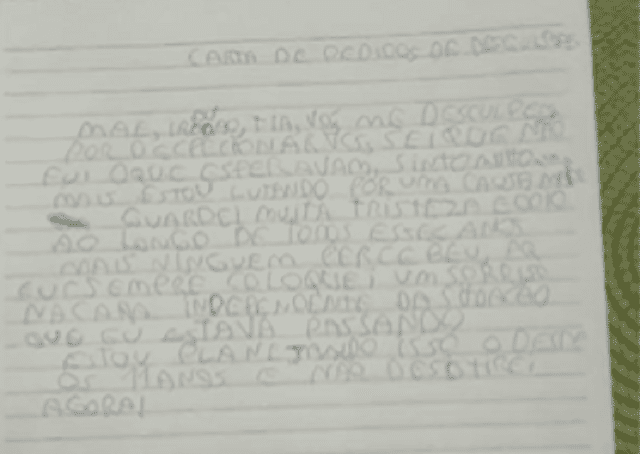 CARTA DE PEDIDOS DE DESCULPAS
MAE, IRMÃO, TIA, VOS ME DESCULPEM
POR DECEPCIONAR VCS, SEI QUE NÃO
FUI OQUE ESPERAVAM, SINTO MUITO
MAIS ESTOU LUTANDO POR UMA CAUSA
GUARDEI MUITA TRISTEZA EODIO
AO LONGO DE TODOS ESSES ANOS
MAIS NINGUEM PERCEBEU,
EU SEMPRE COLOQUEI UM SORRISO
NACARA INDEPENDENTE DA
QUE EU ESTAVA PASSANDO
ESTOU PLANEJANDO ISSO DESDE
OS 11 ANOS E NÃO DESISTIREI
AGORA!